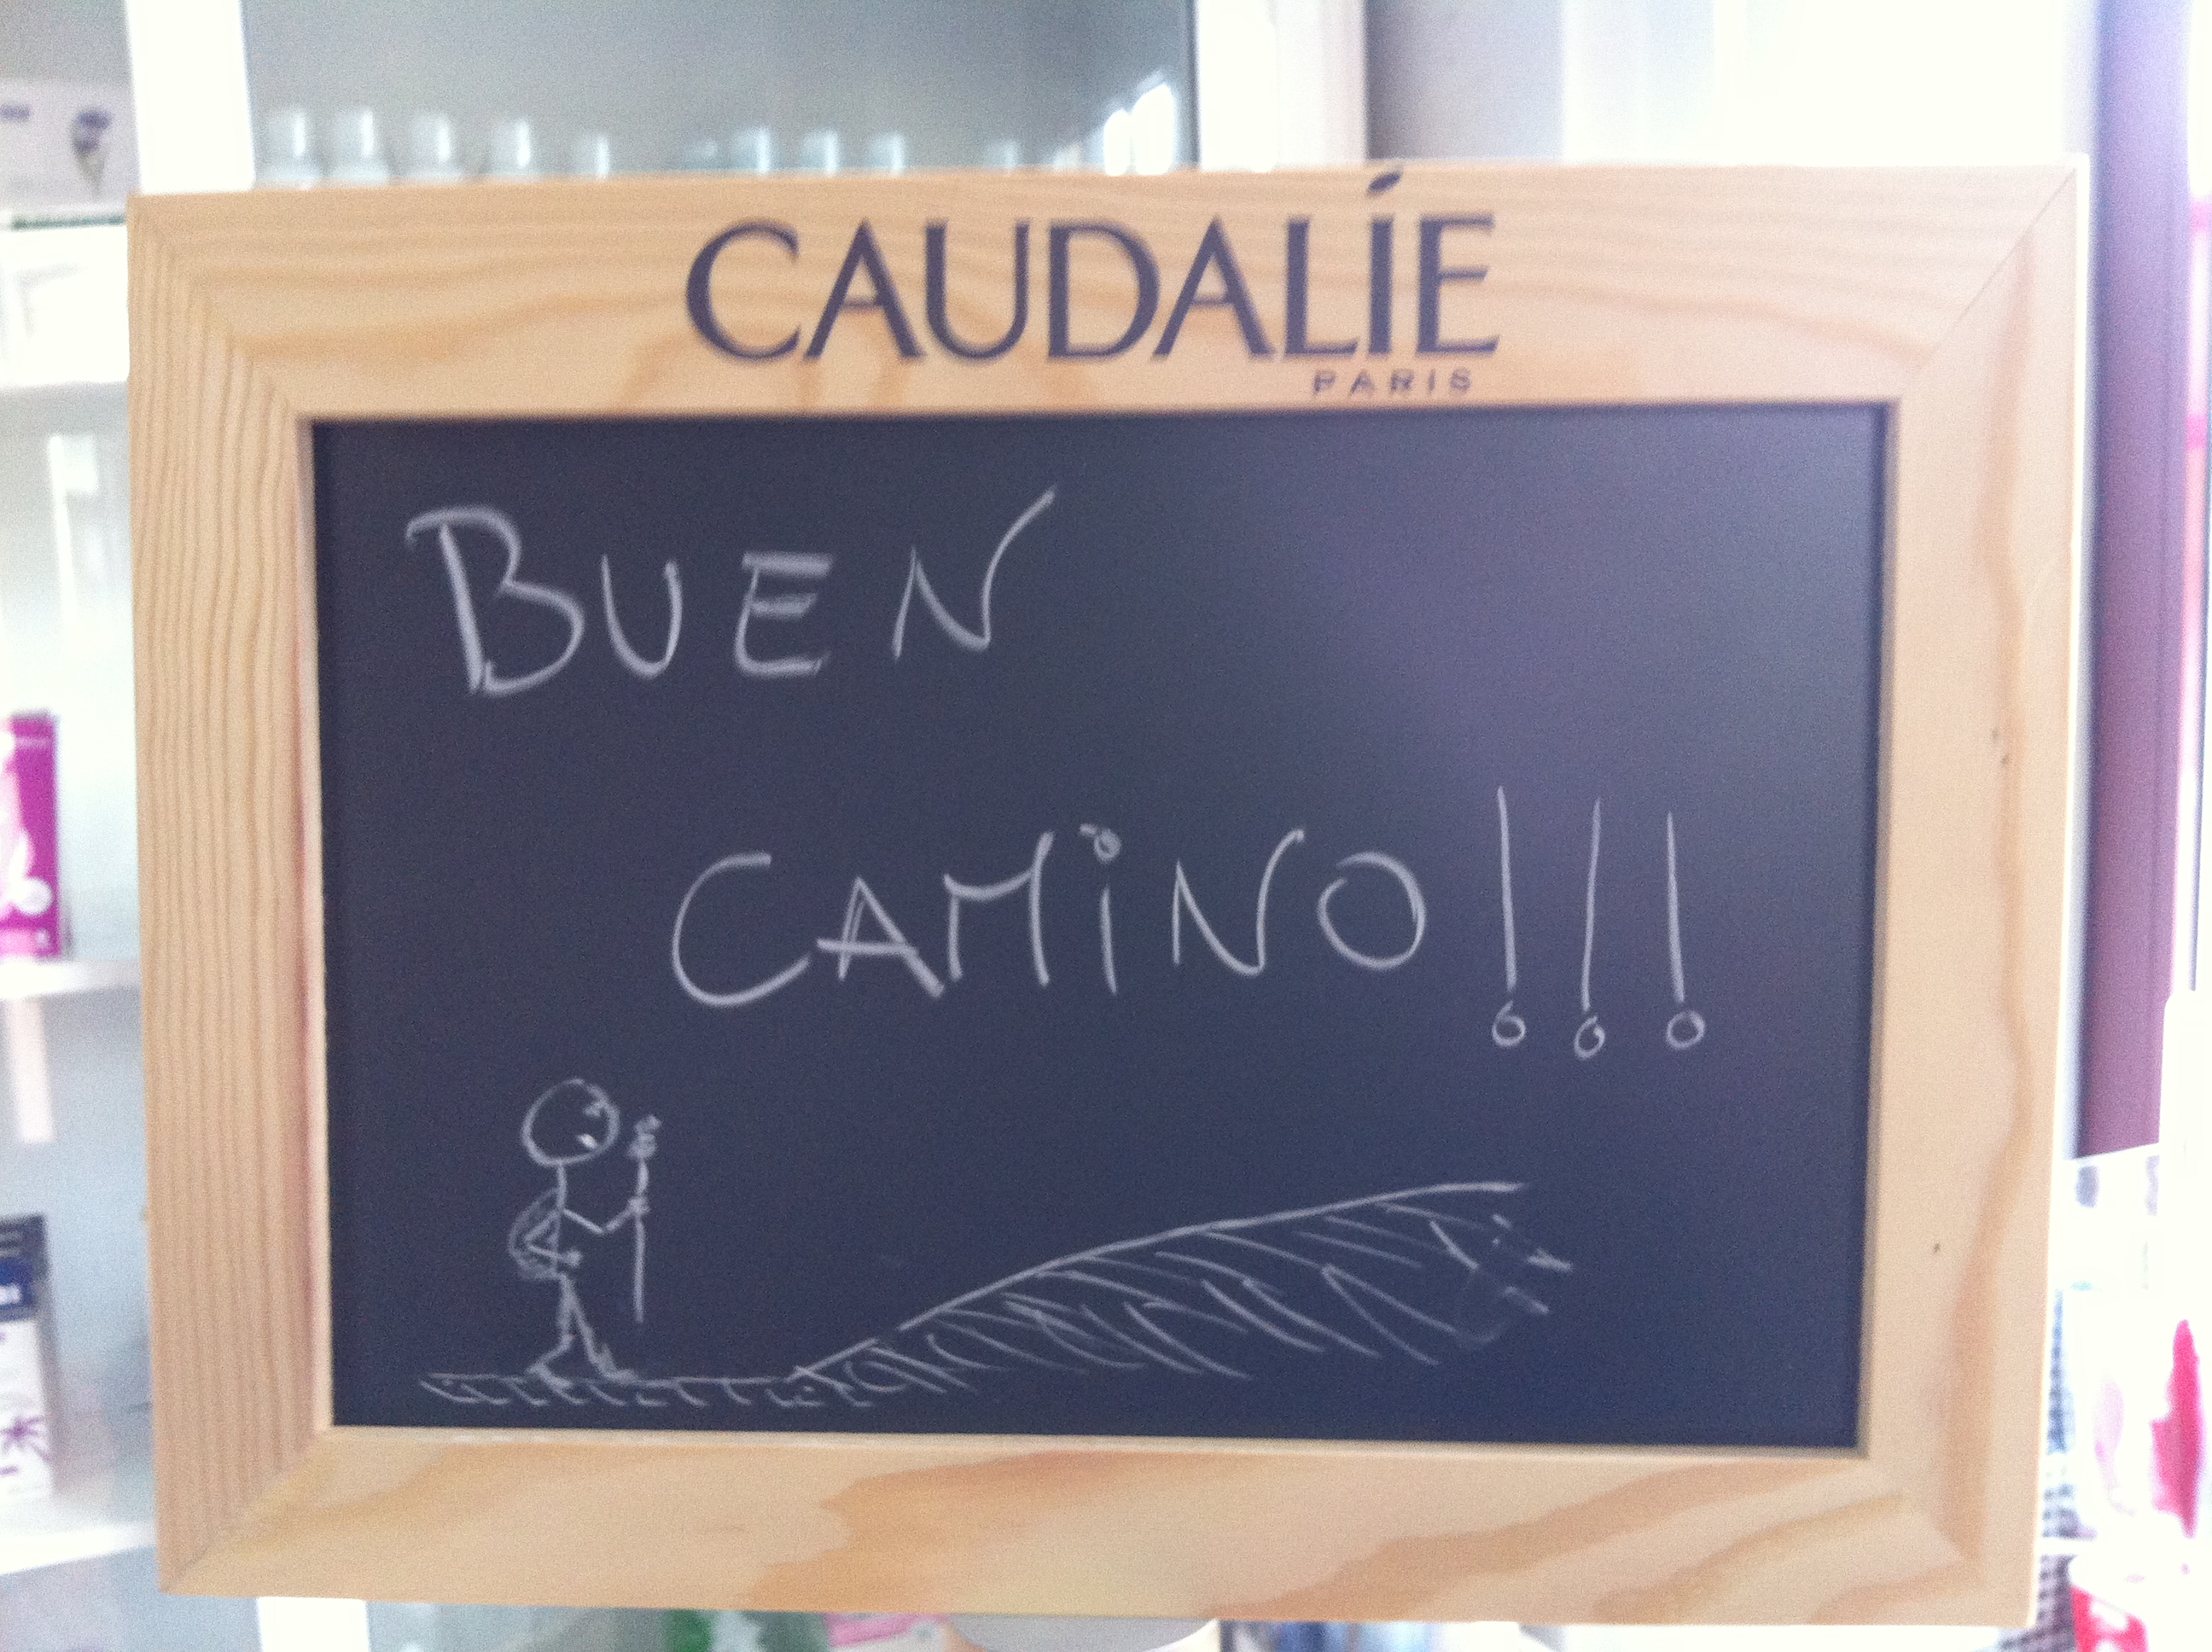 CAUDALÍE
PARIS
BUEN
CAMiNO!!!